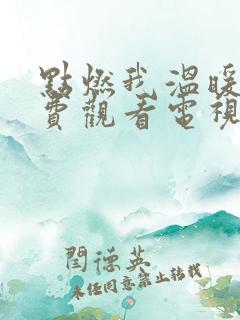 點燃我溫暖
費觀看電視
閆德英
未经同意禁止转载